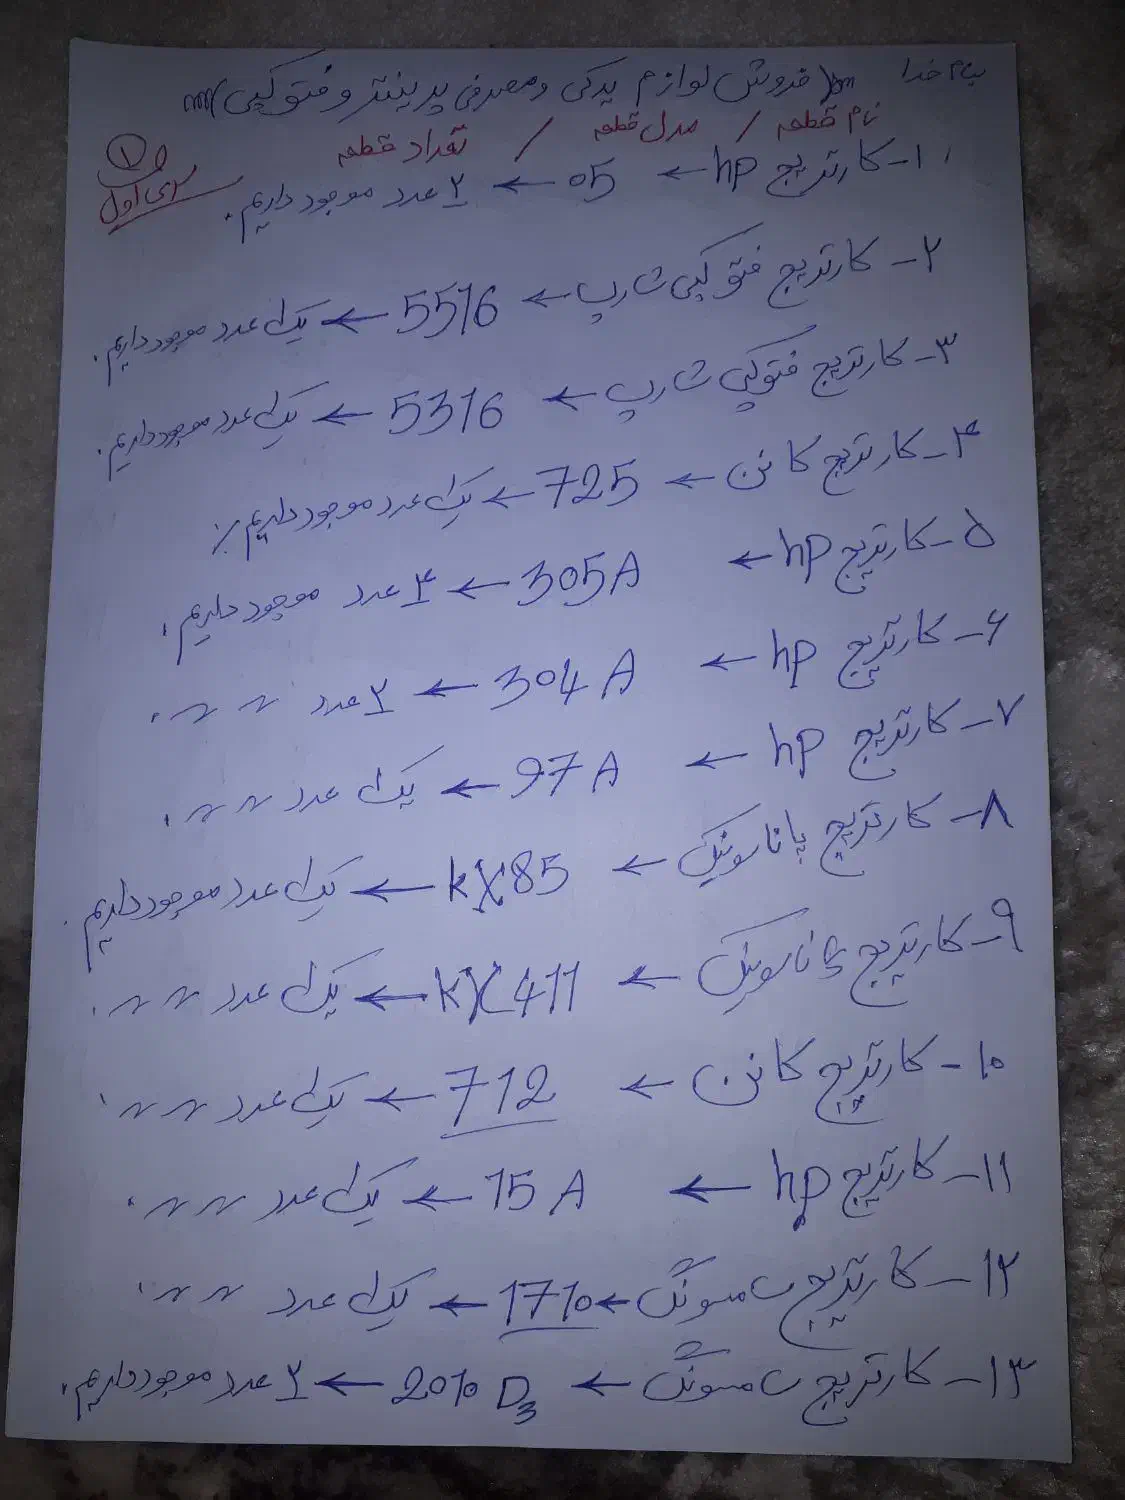 بنام خدا
(فروش لوازم یدکی و مصرفی پرینتر و فتوکپی)
نام قطعه / مدل قطعه / تعداد قطعه
۱
سری اول
۱- کارتریج hp ← 05 ← ۲ عدد موجود داریم.
۲- کارتریج فتوکپی شارپ ← 5516 ← یک عدد موجود داریم.
۳- کارتریج فتوکپی شارپ ← 5316 ← یک عدد موجود داریم.
۴- کارتریج کانن ← 725 ← یک عدد موجود داریم.
۵- کارتریج hp ← 305A ← ۴ عدد موجود داریم.
۶- کارتریج hp ← 304A ← ۲ عدد ~ ~.
۷- کارتریج hp ← 97A ← یک عدد ~ ~.
۸- کارتریج پاناسونیک ← kX85 ← یک عدد موجود داریم.
۹- کارتریج پاناسونیک ← kX411 ← یک عدد ~ ~.
۱۰- کارتریج کانن ← 712 ← یک عدد ~ ~.
۱۱- کارتریج hp ← 15A ← یک عدد ~ ~.
۱۲- کارتریج سامسونگ ← 1710 ← یک عدد ~ ~.
۱۳- کارتریج سامسونگ ← 2010 D3 ← ۲ عدد موجود داریم.